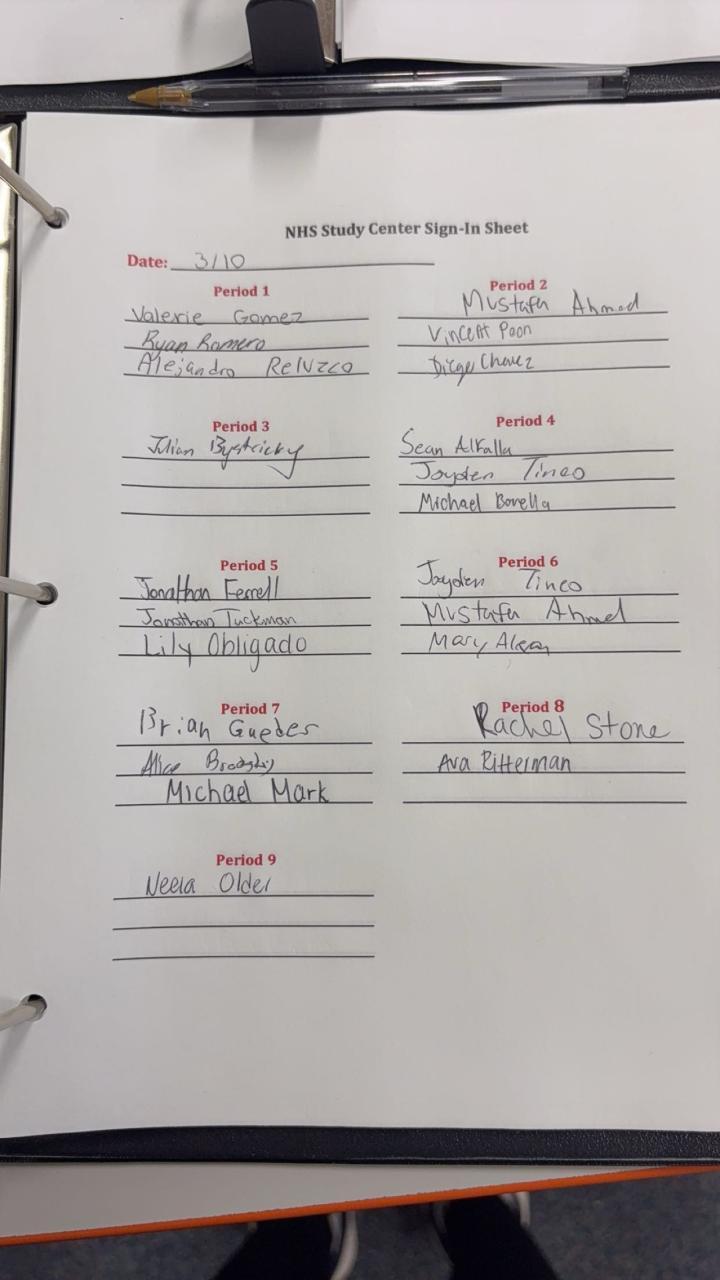 NHS Study Center Sign-In Sheet
Date: 3/10
Period 1
Valerie Gomez
Ryan Romero
Alejandro Reluzco
Period 2
Mustafa Ahmed
Vincent Poon
Diego Chavez
Period 3
Julian Bystricky
Period 4
Sean Alkalla
Jayden Tineo
Michael Bovella
Period 5
Jonathan Ferrell
Jonathan Tuckman
Lily Obligado
Period 6
Jayden Tineo
Mustafa Ahmed
Mary
Period 7
Brian Guedes
Alice
Michael Mark
Period 8
Rachel Stone
Ava Ritterman
Period 9
Neela Older